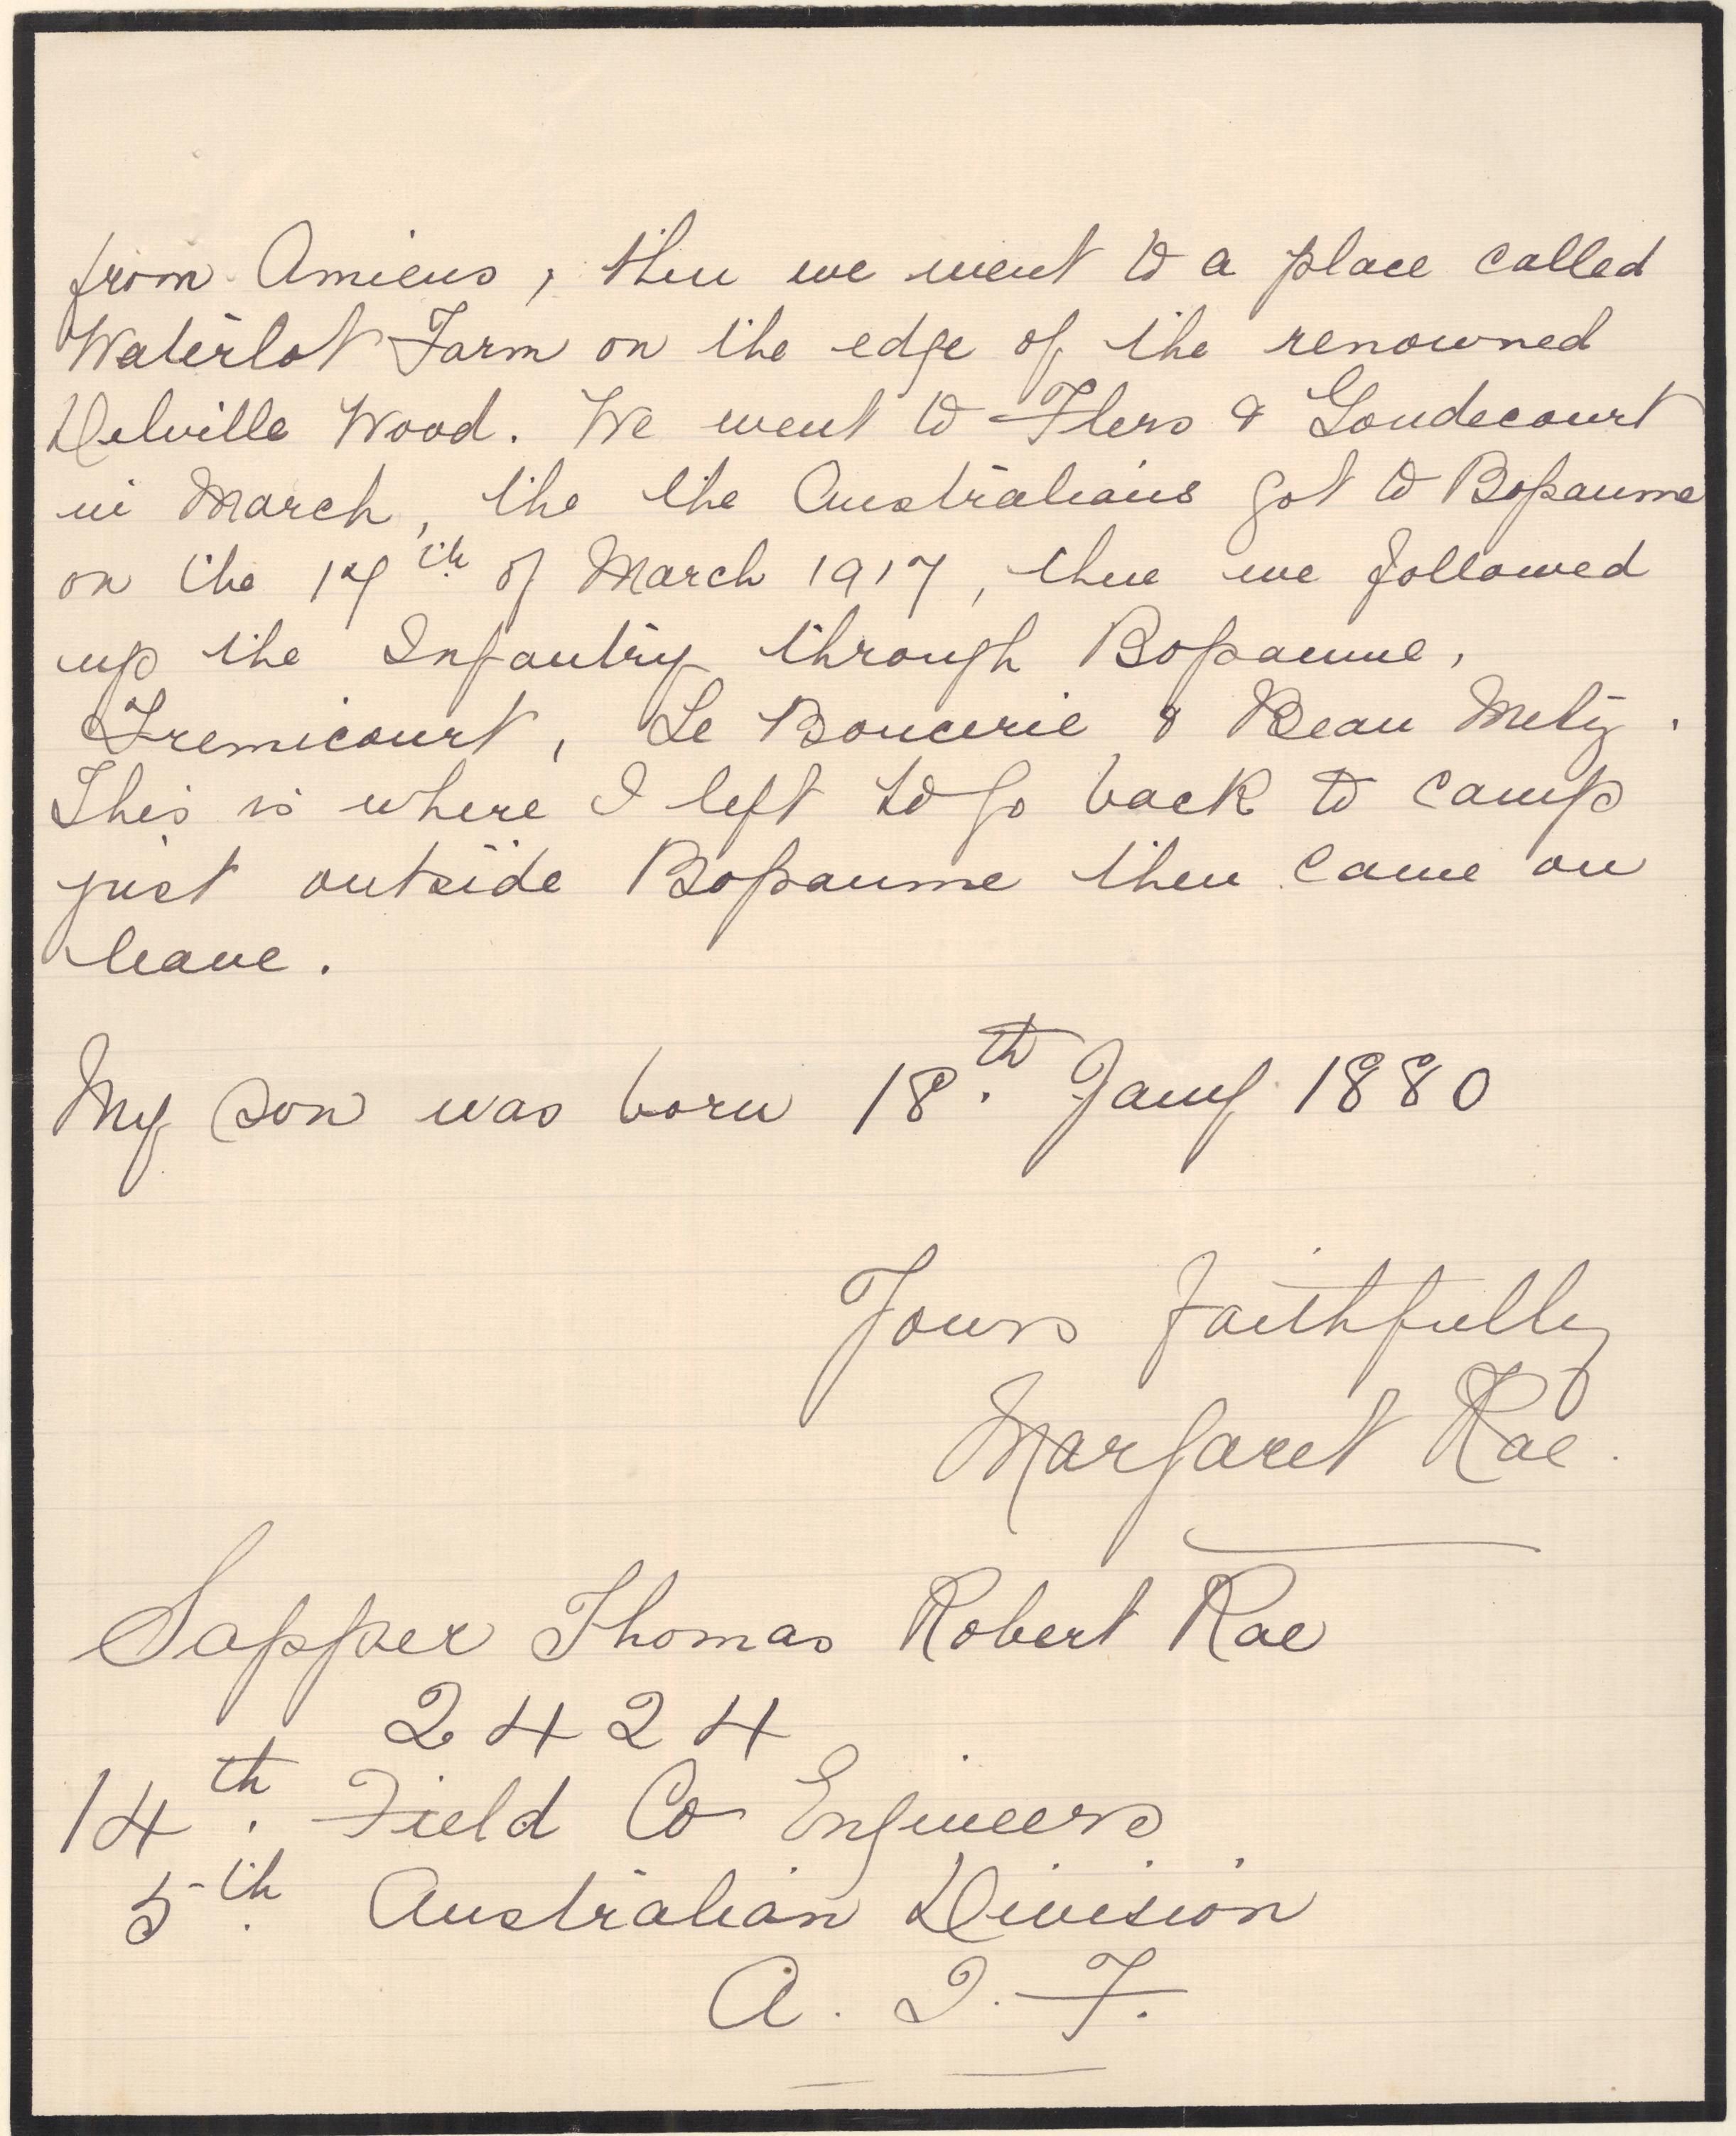 from Amiens, then we went to a place called
Waterlot Farm on the edge of the renowned
Delville Wood. We went to Flers & Goudecourt
in March, the the Australians got to Bopaume
on the 17th of March 1917, then we followed
up the Infantry through Bopaume,
Fremicourt, Le Boucerie & Beau Metz.
This is where I left to go back to camp
just outside Bopaume then came on
leave.
My son was born 18th. Jany 1880
Yours faithfully
Margaret Rae.
Sapper Thomas Robert Rae
2424
14th. Field Co Engineers
5th. Australian Division
A. I. F.